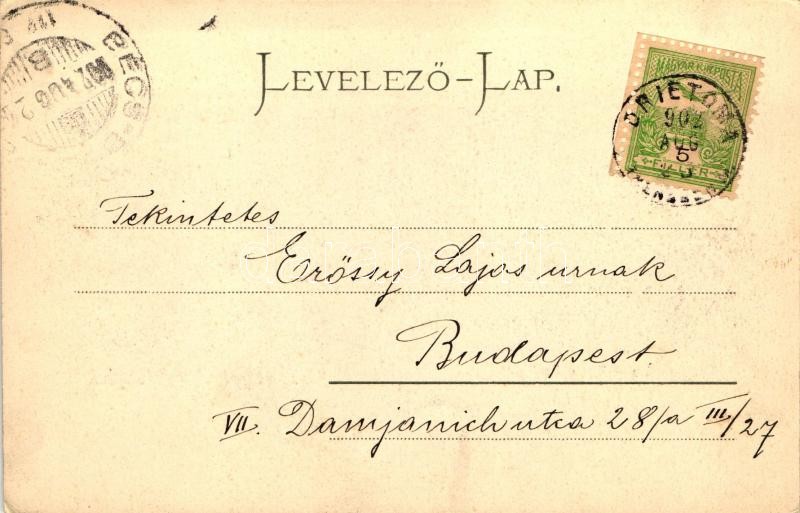 LEVELEZŐ-LAP.
MAGYAR KIR. POSTA
902
AUG
5
FILLÉR
Tekintetes
Erőssy Lajos urnak
Budapest.
VII. Damjanich utca 28/a III/27